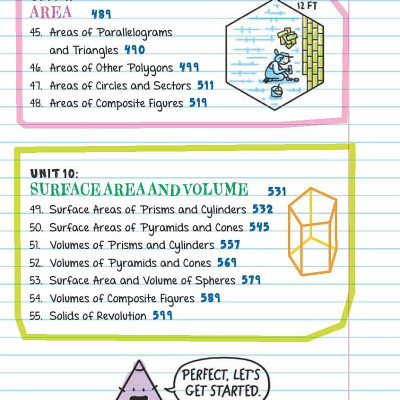 12 FT
AREA 489
45. Areas of Parallelograms
and Triangles 490
46. Areas of Other Polygons 499
47. Areas of Circles and Sectors 511
48. Areas of Composite Figures 519
UNIT 10:
SURFACE AREA AND VOLUME 531
49. Surface Areas of Prisms and Cylinders 532
50. Surface Areas of Pyramids and Cones 545
51. Volumes of Prisms and Cylinders 557
52. Volumes of Pyramids and Cones 569
53. Surface Area and Volume of Spheres 579
54. Volumes of Composite Figures 589
55. Solids of Revolution 599
PERFECT, LET'S
GET STARTED.